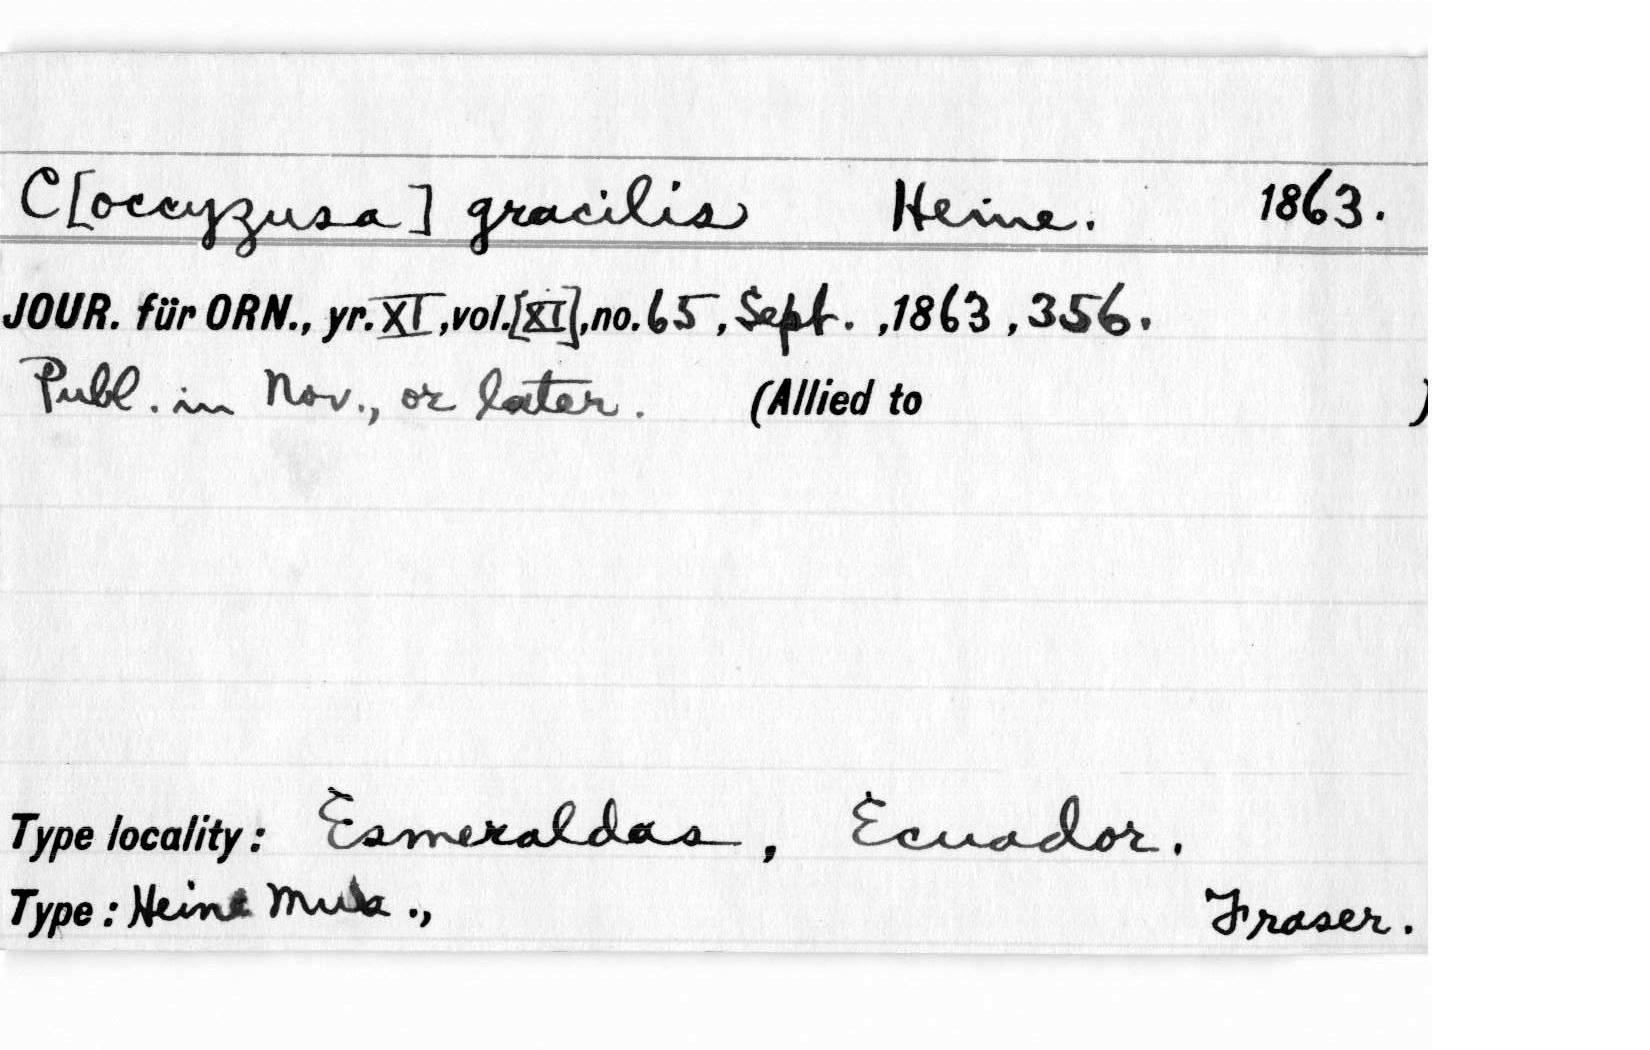 C[occyzusa] gracilis Heine. 1863.
JOUR. für ORN., yr. XI, vol. [XI], no. 65, Sept. , 1863, 356.
Publ. in Nov., or later. (Allied to )
Type locality: Esmeraldas, Ecuador.
Type: Heine Mus., Fraser.